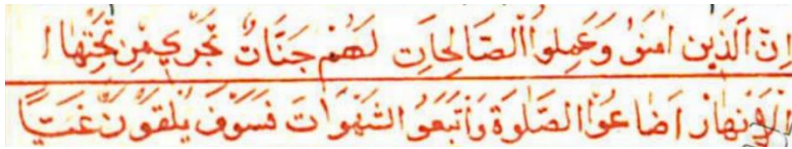 اِنّ الَّذِين امَنَوُ وَعَمِلوُا الصَّالِحَاتِ لَهُمْ جَنَّاتٌ تَجْرِي مِنْ تَحْتِهَا ا
لْاَنْهَارْ اَضَاعُوْا الصَّلَوةَ وَاتَّبَعَوُ الشَهَوَاتَ فَسَوْفَ يُلْقَوْنَ غَيَّاً